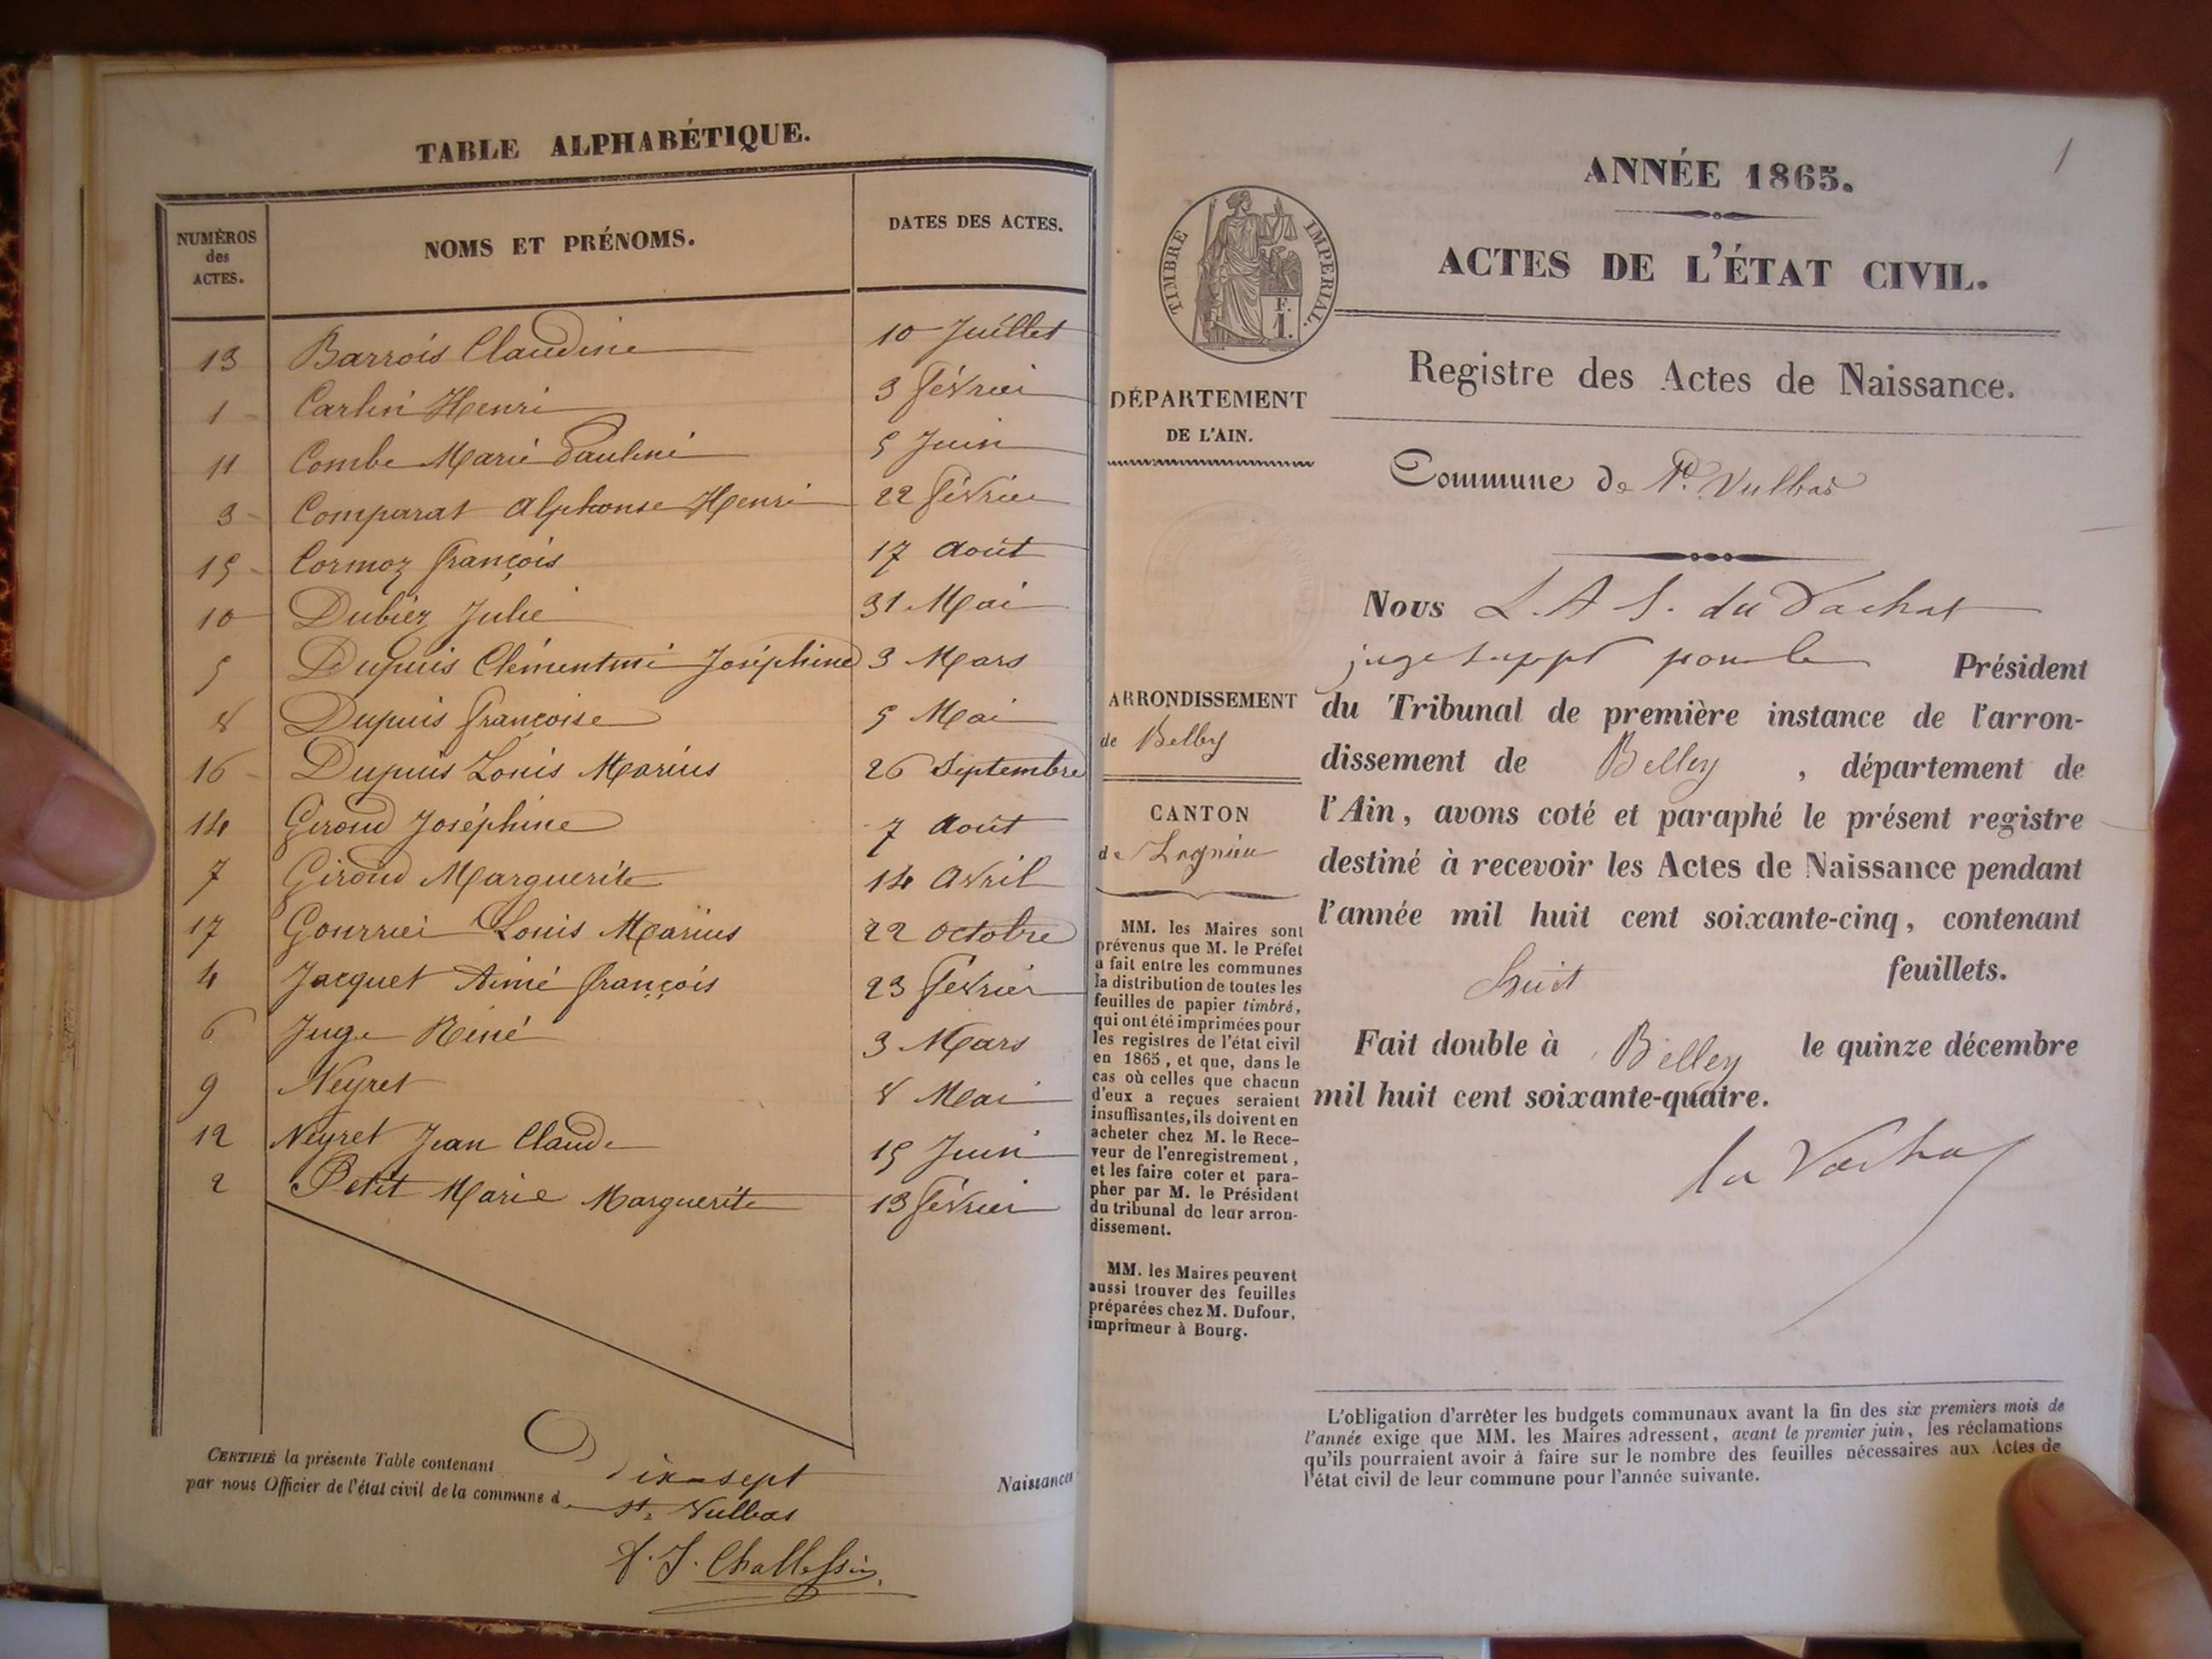 TABLE ALPHABÉTIQUE.
NUMÉROS des ACTES. NOMS ET PRÉNOMS. DATES DES ACTES.
13 Barrois Claudine 10 Juillet
1 Carlin Henri 3 Février
11 Combe Marie Pauline 5 Juin
3 Comparat Alphonse Henri 22 Février
15 Cormoz François 17 Août
10 Dubiez Julie 31 Mai
5 Dupuis Clémentine Joséphine 3 Mars
8 Dupuis Françoise 5 Mai
16 Dupuis Louis Marius 26 Septembre
14 Giroud Joséphine 7 Août
7 Giroud Marguerite 14 Avril
17 Gourrier Louis Marius 22 Octobre
4 Jacquet Aimé François 23 Février
6 Juge Réné 3 Mars
9 Neyret 8 Mai
12 Neyret Jean Claude 15 Juin
2 Petit Marie Marguerite 13 Février
CERTIFIÉ la présente Table contenant Dix-sept Naissances
par nous Officier de l'état civil de la commune d St. Vulbas
ANNÉE 1865.
1
ACTES DE L'ÉTAT CIVIL.
TIMBRE IMPERIAL.
F.
1.
Registre des Actes de Naissance.
DÉPARTEMENT
DE L'AIN.
Commune de St. Vulbas
ARRONDISSEMENT
de Belley
CANTON
de Lagnieu
MM. les Maires sont
prévenus que M. le Préfet
a fait entre les communes
la distribution de toutes les
feuilles de papier timbré,
qui ont été imprimées pour
les registres de l'état civil
en 1865, et que, dans le
cas où celles que chacun
d'eux a reçues seraient
insuffisantes, ils doivent en
acheter chez M. le Rece-
veur de l'enregistrement,
et les faire coter et para-
pher par M. le Président
du tribunal de leur arron-
dissement.
MM. les Maires peuvent
aussi trouver des feuilles
préparées chez M. Dufour,
imprimeur à Bourg.
Nous L. A. S. du Vachat
juge suppt pour le Président
du Tribunal de première instance de l'arron-
dissement de Belley, département de
l'Ain, avons coté et paraphé le présent registre
destiné à recevoir les Actes de Naissance pendant
l'année mil huit cent soixante-cinq, contenant
huit feuillets.
Fait double à Belley le quinze décembre
mil huit cent soixante-quatre.
du Vachat
L'obligation d'arrêter les budgets communaux avant la fin des six premiers mois de
l'année exige que MM. les Maires adressent, avant le premier juin, les réclamations
qu'ils pourraient avoir à faire sur le nombre des feuilles nécessaires aux Actes de
l'état civil de leur commune pour l'année suivante.